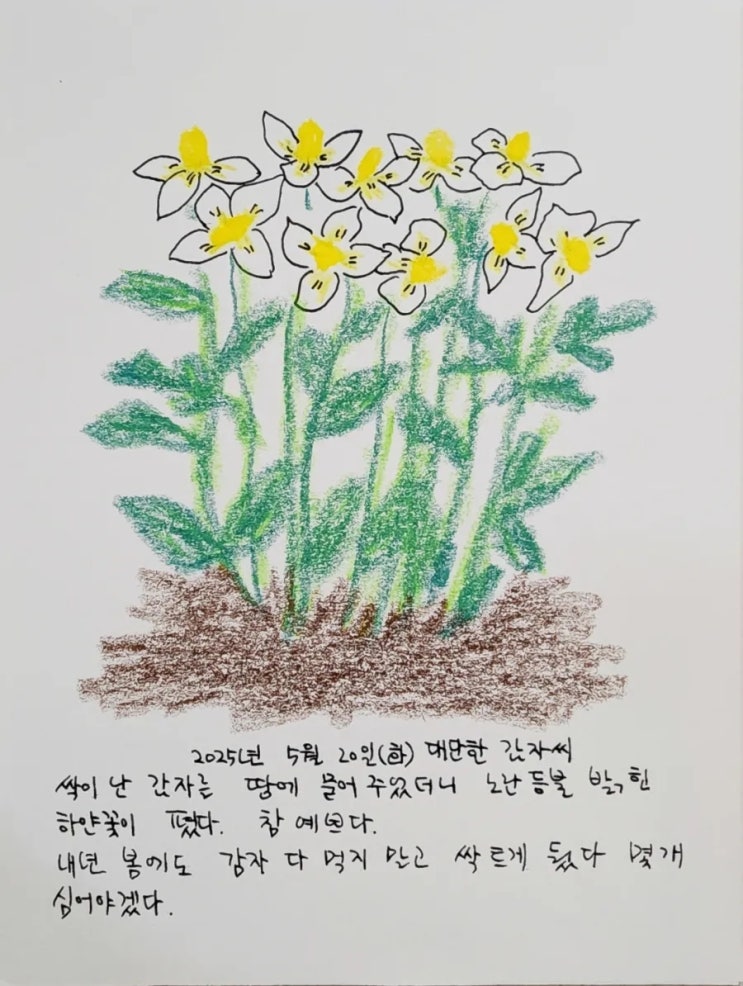 2025년 5월 20일(화) 대단한 감자씨
싹이 난 감자를 땅에 묻어 주었더니 노란등불 밝힌
하얀꽃이 폈다. 참 예쁘다.
내년 봄에도 감자 다 먹지 말고 싹 트게 뒀다 몇개
심어야겠다.